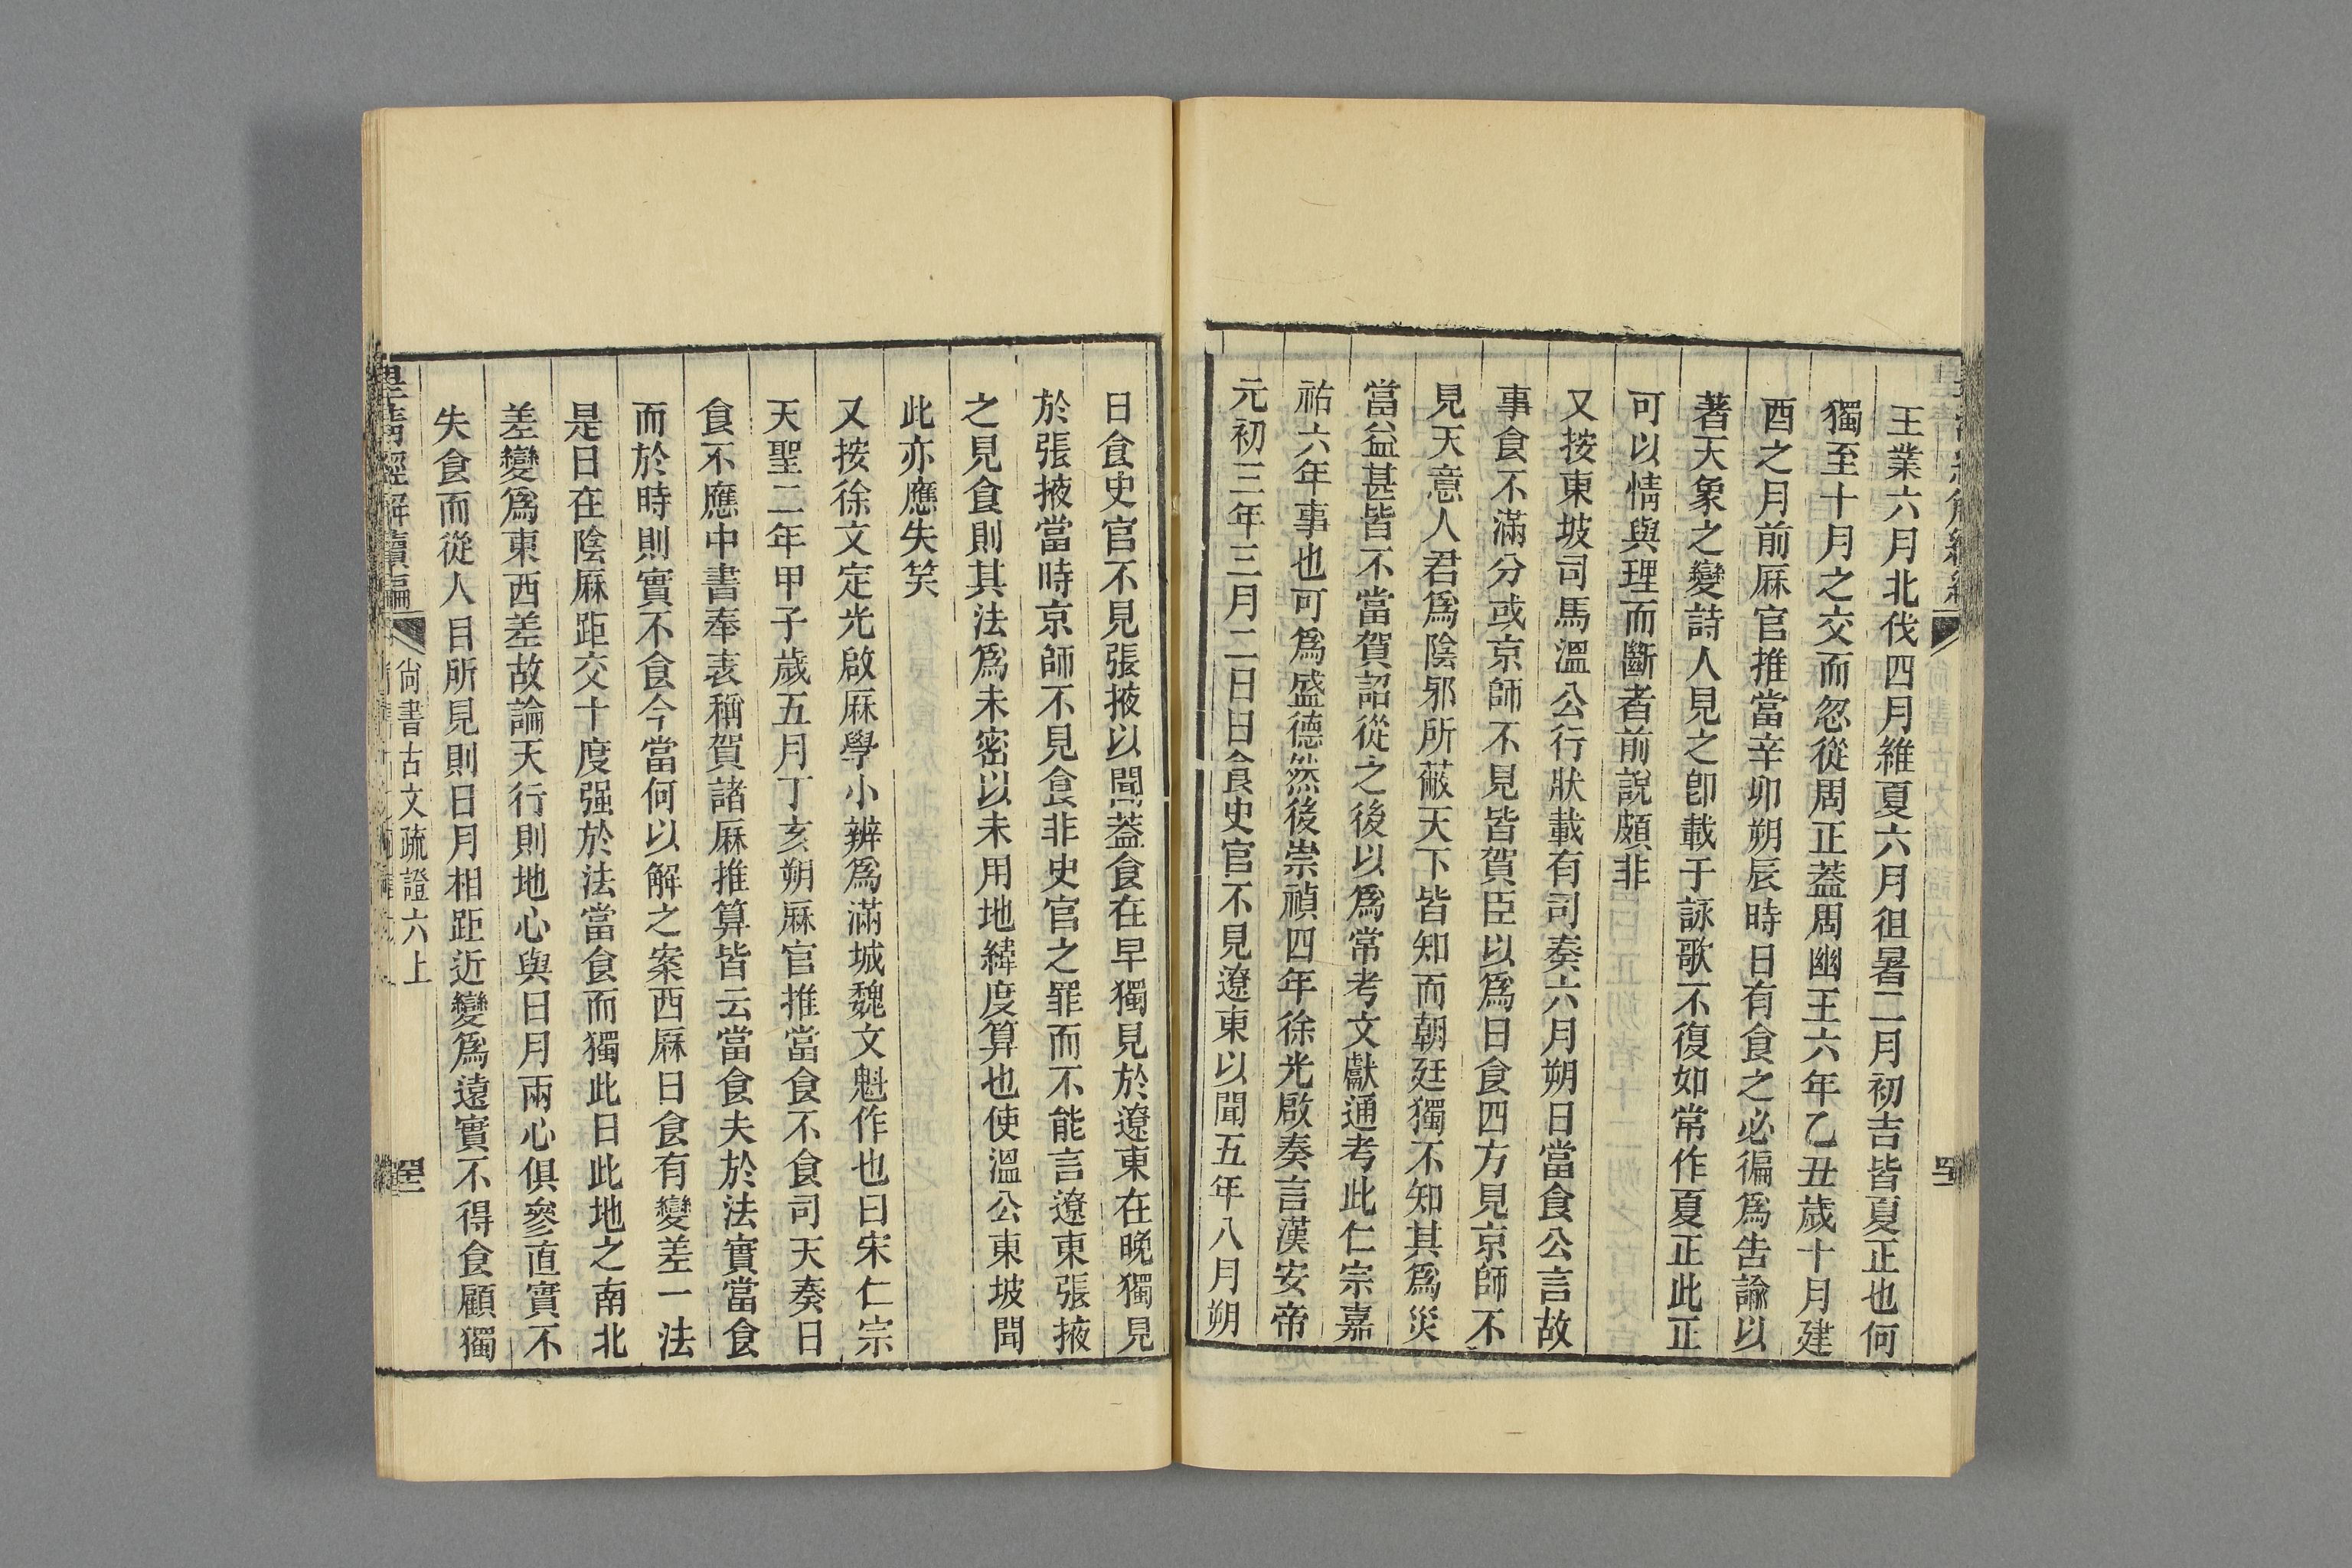 王業六月北伐四月維夏六月徂暑二月初吉皆夏正也何
獨至十月之交而忽從周正蓋周幽王六年乙丑歲十月建
酉之月前厤官推當辛卯朔辰時日有食之必徧爲告諭以
著天象之變詩人見之卽載于詠歌不復如常作夏正此正
可以情與理而斷者前說頗非
又按東坡司馬溫公行狀載有司奏六月朔日當食公言故
事食不滿分或京師不見皆賀臣以爲日食四方見京師不
見天意人君爲陰邪所蔽天下皆知而朝廷獨不知其爲災
當益甚皆不當賀詔從之後以爲常考文獻通考此仁宗嘉
祐六年事也可爲盛德然後崇禎四年徐光啟奏言漢安帝
元初三年三月二日日食史官不見遼東以聞五年八月朔
日食史官不見張掖以聞蓋食在早獨見於遼東在晚獨見
於張掖當時京師不見食非史官之罪而不能言遼東張掖
之見食則其法爲未密以未用地緯度算也使溫公東坡聞
此亦應失笑
又按徐文定光啟厤學小辨爲滿城魏文魁作也曰宋仁宗
天聖二年甲子歲五月丁亥朔厤官推當食不食司天奏日
食不應中書奉表稱賀諸厤推算皆云當食夫於法實當食
而於時則實不食今當何以解之案西厤日食有變差一法
是日在陰厤距交十度强於法當食而獨此日此地之南北
差變爲東西差故論天行則地心與日月兩心俱參直實不
失食而從人目所見則日月相距近變爲遠實不得食顧獨
皇清經解續編
尚書古文疏證六上